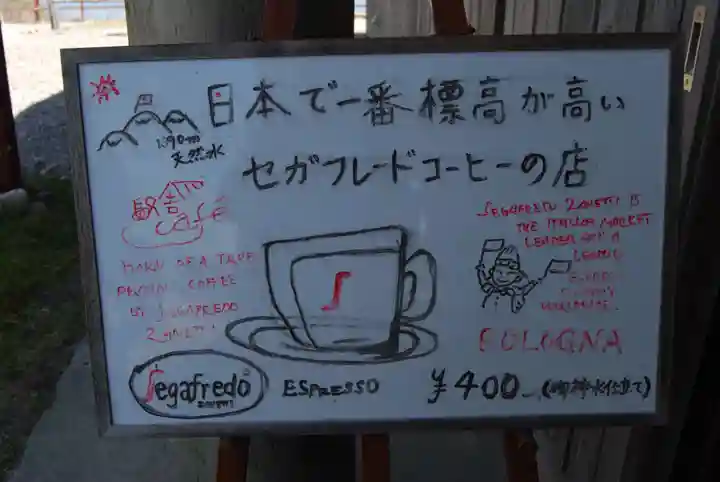 日本で一番標高が高い
セガフレードコーヒーの店
天然水
駅舎
CAFÉ
SEGAFREDO ZANETTI IS
THE ITALIAN MARKET
LEADER
MARK OF A TRUE
COFFEE
IS SEGAFREDO
ZANETTI
BOLOGNA
Segafredo
ZANETTI
ESPRESSO
¥400 (御神水仕立て)